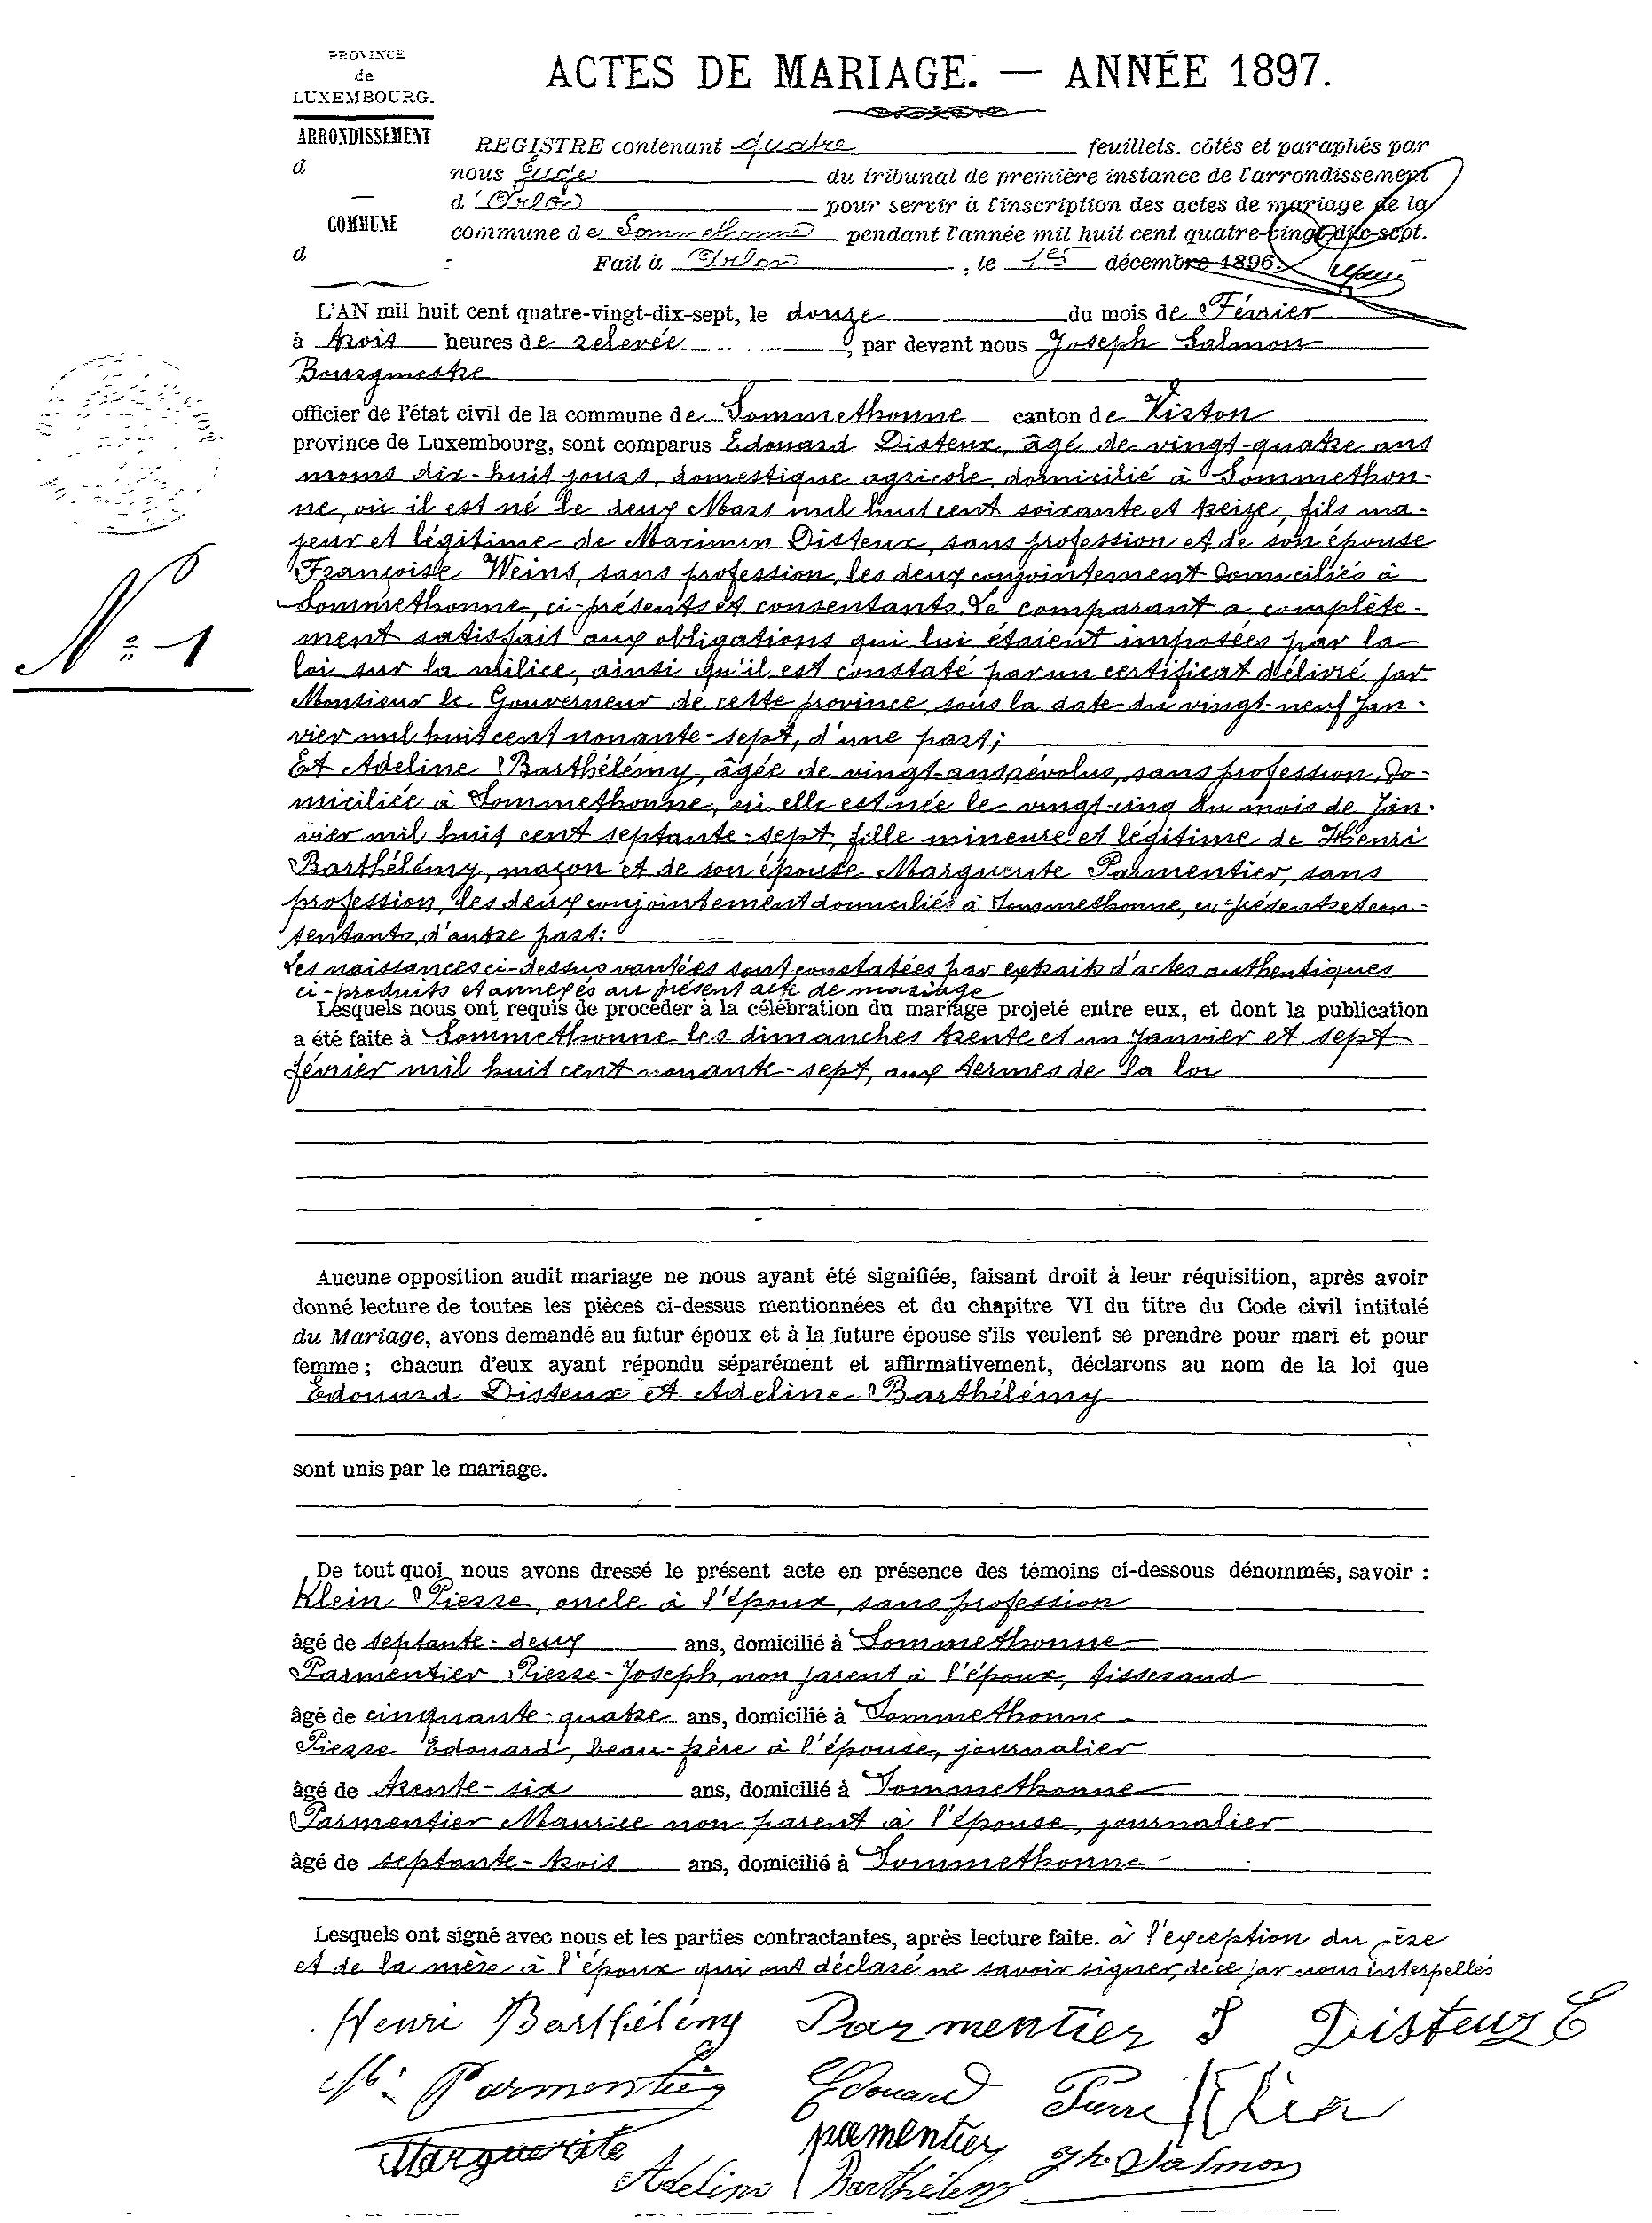 PROVINCE
de
LUXEMBOURG.
ARRONDISSEMENT
d
COMMUNE
d
ACTES DE MARIAGE. — ANNÉE 1897.
REGISTRE contenant quatre feuillets. côtés et paraphés par
nous Juge du tribunal de première instance de l'arrondissement
d'Arlon pour servir à l'inscription des actes de mariage de la
commune de Sommethonne pendant l'année mil huit cent quatre-vingt-dix-sept.
Fait à Arlon, le 15 décembre 1896.
L'AN mil huit cent quatre-vingt-dix-sept, le douze du mois de Février
à trois heures de relevée, par devant nous Joseph Salmon
Bourgmestre
officier de l'état civil de la commune de Sommethonne canton de Virton
province de Luxembourg, sont comparus Edouard Disteux, âgé de vingt-quatre ans
moins dix-huit jours, domestique agricole, domicilié à Sommethon-
ne, où il est né le deux Mars mil huit cent soixante et treize, fils ma-
jeur et légitime de Maximin Disteux, sans profession et de son épouse
Françoise Weins, sans profession, les deux conjointement domiciliés à
Sommethonne, ci-présents et consentants. Le comparant a complète-
ment satisfait aux obligations qui lui étaient imposées par la
loi sur la milice, ainsi qu'il est constaté par un certificat délivré par
Monsieur le Gouverneur de cette province, sous la date du vingt-neuf Jan-
vier mil huit cent nonante-sept, d'une part;
N° 1
Et Adeline Barthélémy, âgée de vingt ans révolus, sans profession, do-
miciliée à Sommethonne, où elle est née le vingt-cinq du mois de Jan-
vier mil huit cent septante-sept, fille mineure et légitime de Henri
Barthélémy, maçon et de son épouse Marguerite Parmentier, sans
profession, les deux conjointement domiciliés à Sommethonne, ci-présents et con-
sentants, d'autre part:
Les naissances ci-dessus vantées sont constatées par extraits d'actes authentiques
ci-produits et annexés au présent acte de mariage
Lesquels nous ont requis de procéder à la célébration du mariage projeté entre eux, et dont la publication
a été faite à Sommethonne les dimanches trente et un Janvier et sept
février mil huit cent nonante-sept, aux termes de la loi
Aucune opposition audit mariage ne nous ayant été signifiée, faisant droit à leur réquisition, après avoir
donné lecture de toutes les pièces ci-dessus mentionnées et du chapitre VI du titre du Code civil intitulé
du Mariage, avons demandé au futur époux et à la future épouse s'ils veulent se prendre pour mari et pour
femme; chacun d'eux ayant répondu séparément et affirmativement, déclarons au nom de la loi que
Edouard Disteux et Adeline Barthélémy
sont unis par le mariage.
De tout quoi nous avons dressé le présent acte en présence des témoins ci-dessous dénommés, savoir :
Klein Pierre, oncle à l'époux, sans profession
âgé de septante-deux ans, domicilié à Sommethonne
Parmentier Pierre-Joseph, non parent à l'époux, tisserand
âgé de cinquante-quatre ans, domicilié à Sommethonne
Pierre Edouard, beau-frère à l'épouse, journalier
âgé de trente-six ans, domicilié à Sommethonne
Parmentier Maurice non parent à l'épouse, journalier
âgé de septante-trois ans, domicilié à Sommethonne
Lesquels ont signé avec nous et les parties contractantes, après lecture faite. à l'exception du père
et de la mère à l'époux qui ont déclaré ne savoir signer, de ce par nous interpellés
Henri Barthélémy Parmentier J Disteux E
M. Parmentier Edouard Pierre Klein
Marguerite parmentier Jh Salmon
Adeline Barthélemy